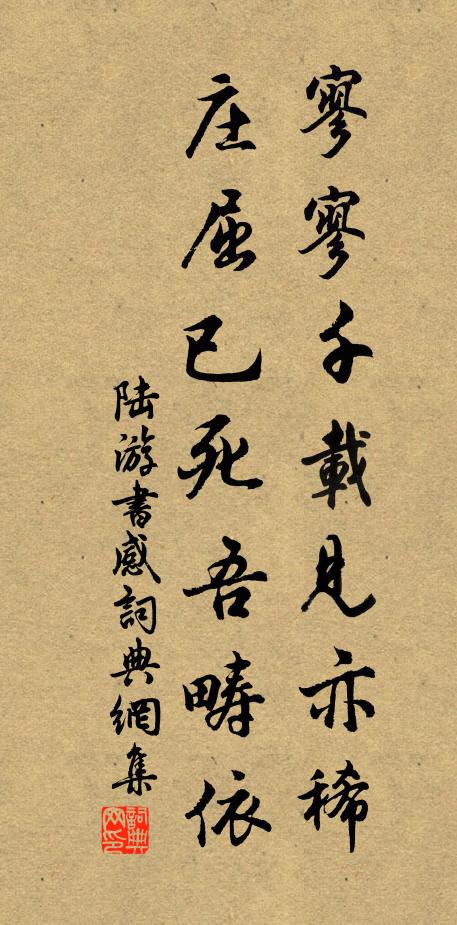 寥寥千載見亦稀
庄屈已死吾疇依
陆游書感詞典網集
詞典网印